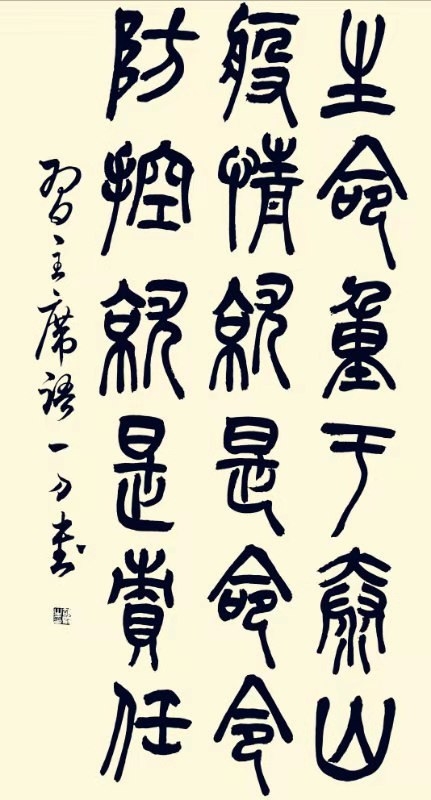 生命重于泰山
疫情就是命令
防控就是責任
習主席語一刀書